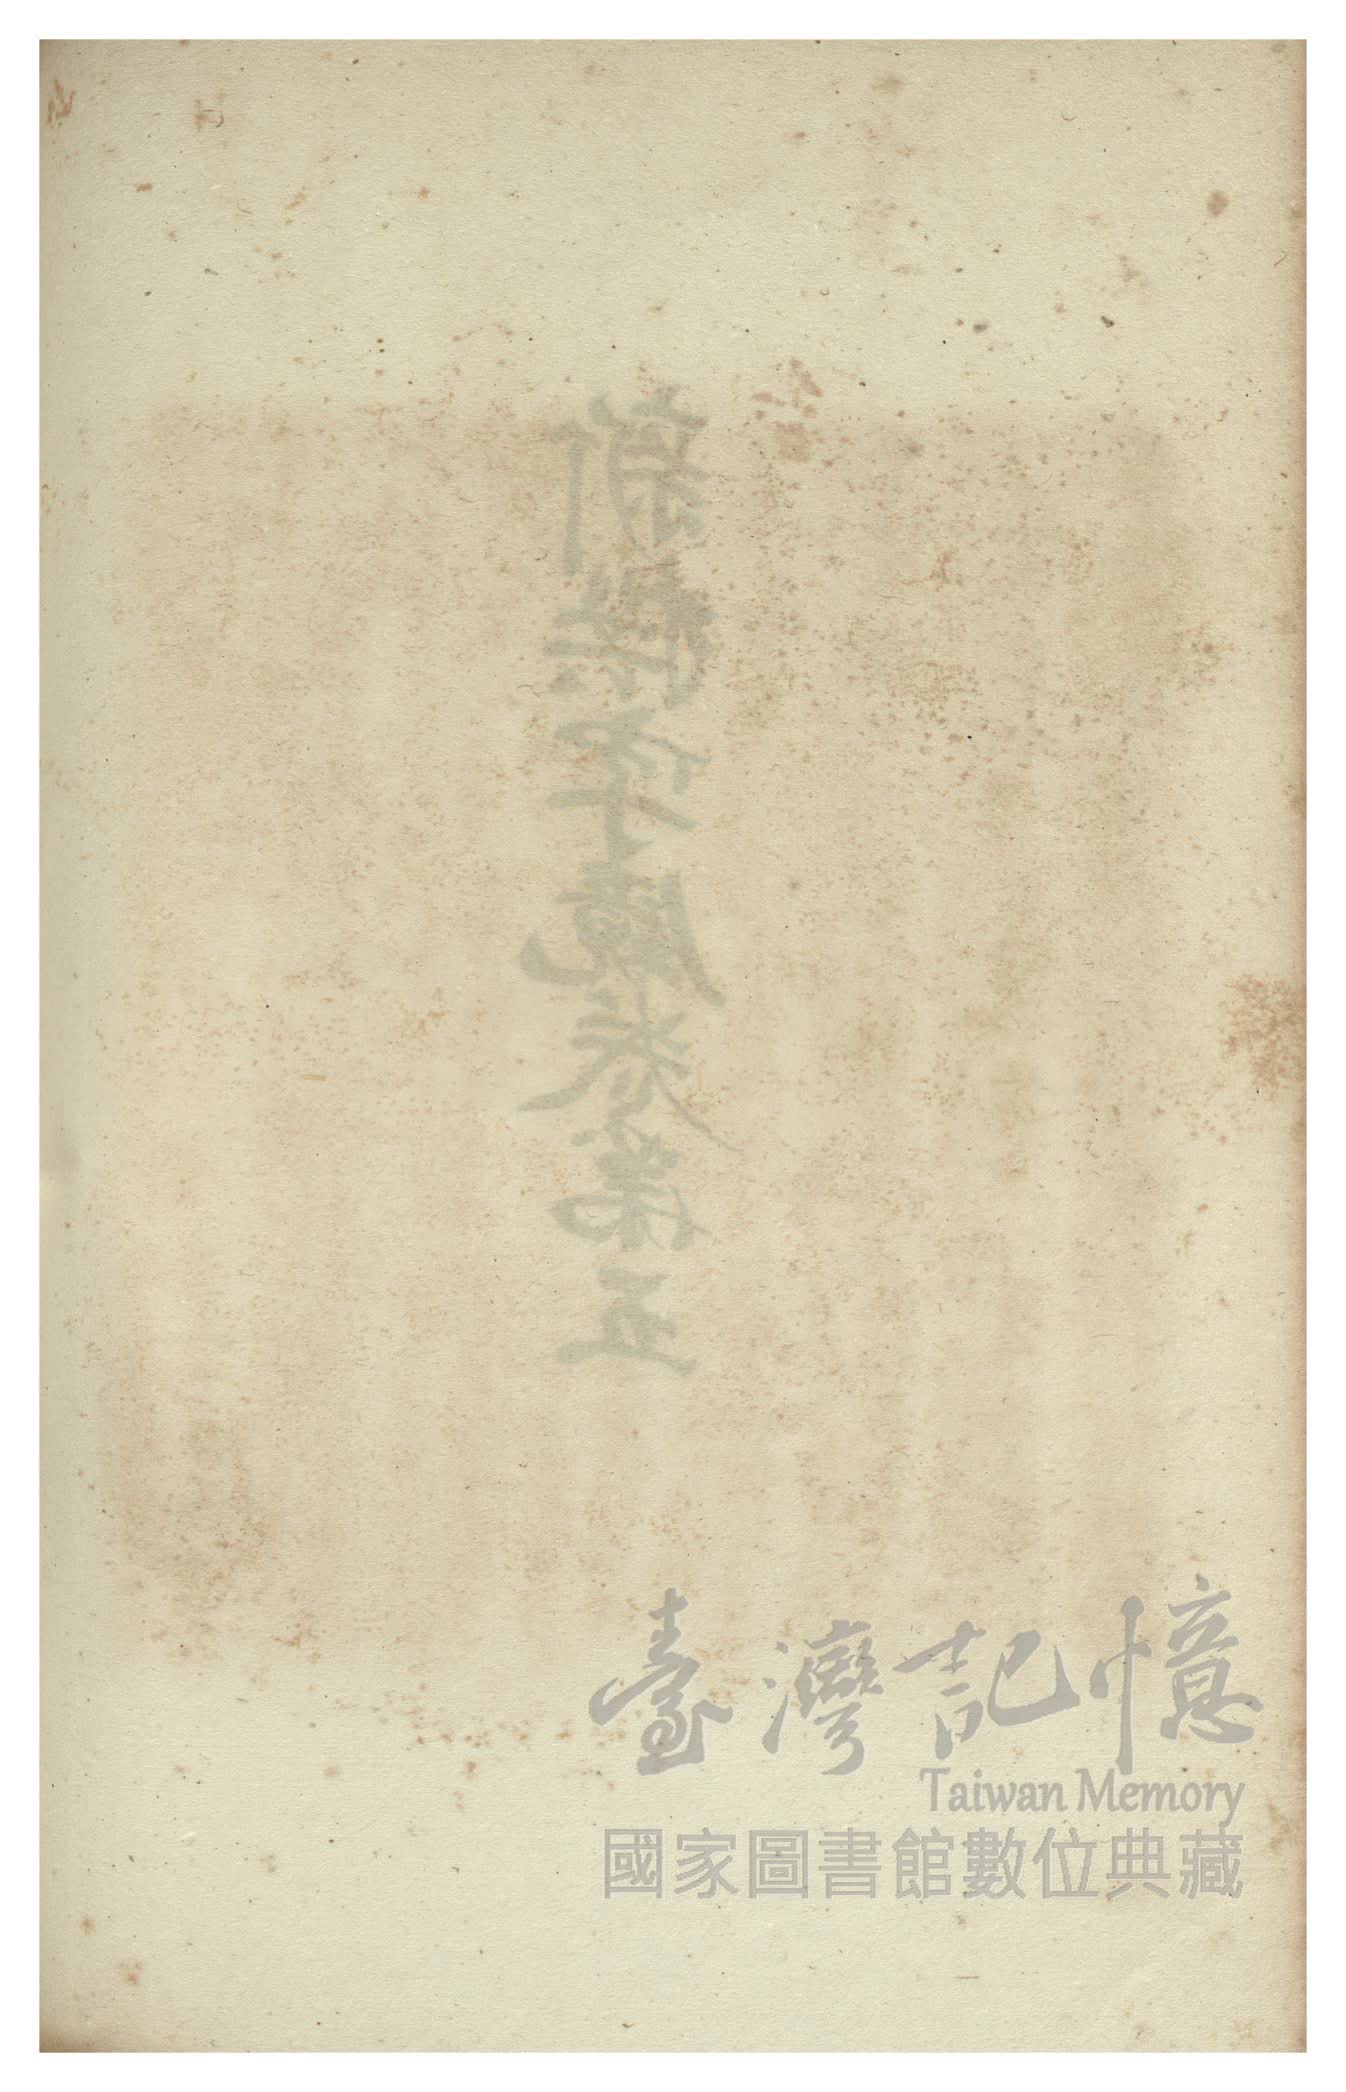 新撰字鏡卷第五
臺灣記憶
Taiwan Memory
國家圖書館數位典藏